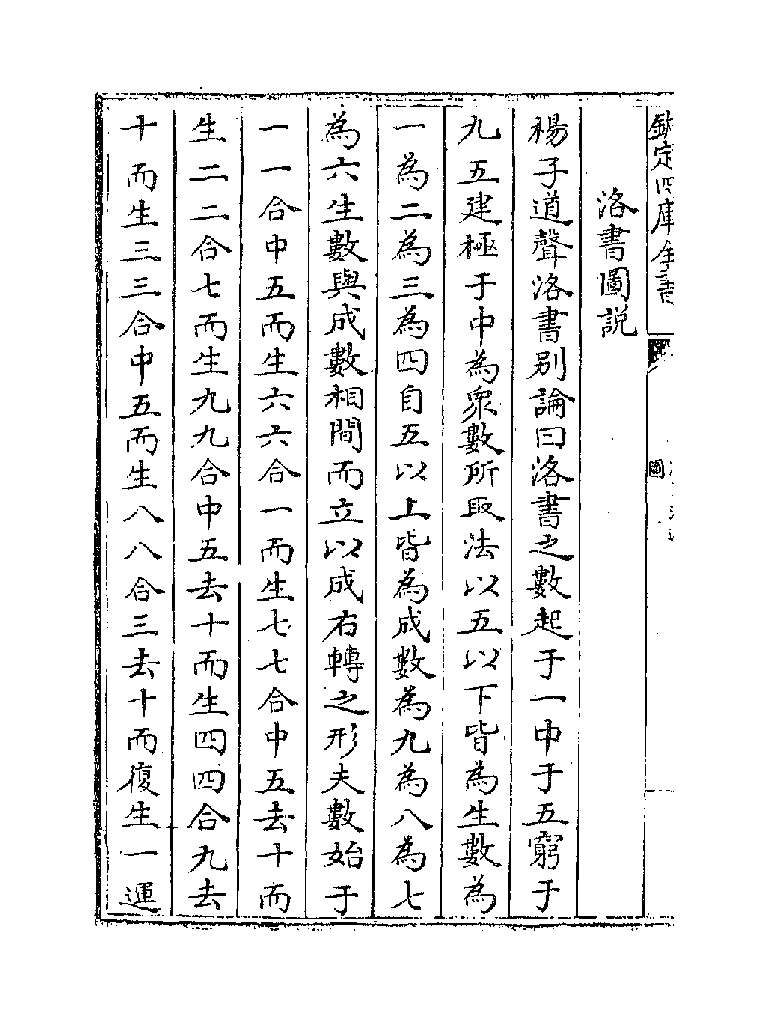 欽定四庫全書
圖
洛書圖説
楊子道聲洛書别論曰洛書之數起于一中于五窮于
九五建極于中為衆數所取法以五以下皆為生數為
一為二為三為四自五以上皆為成數為九為八為七
為六生數與成數相間而立以成右轉之形夫數始于
一一合中五而生六六合一而生七七合中五去十而
生二二合七而生九九合中五去十而生四四合九去
十而生三三合中五而生八八合三去十而復生一運